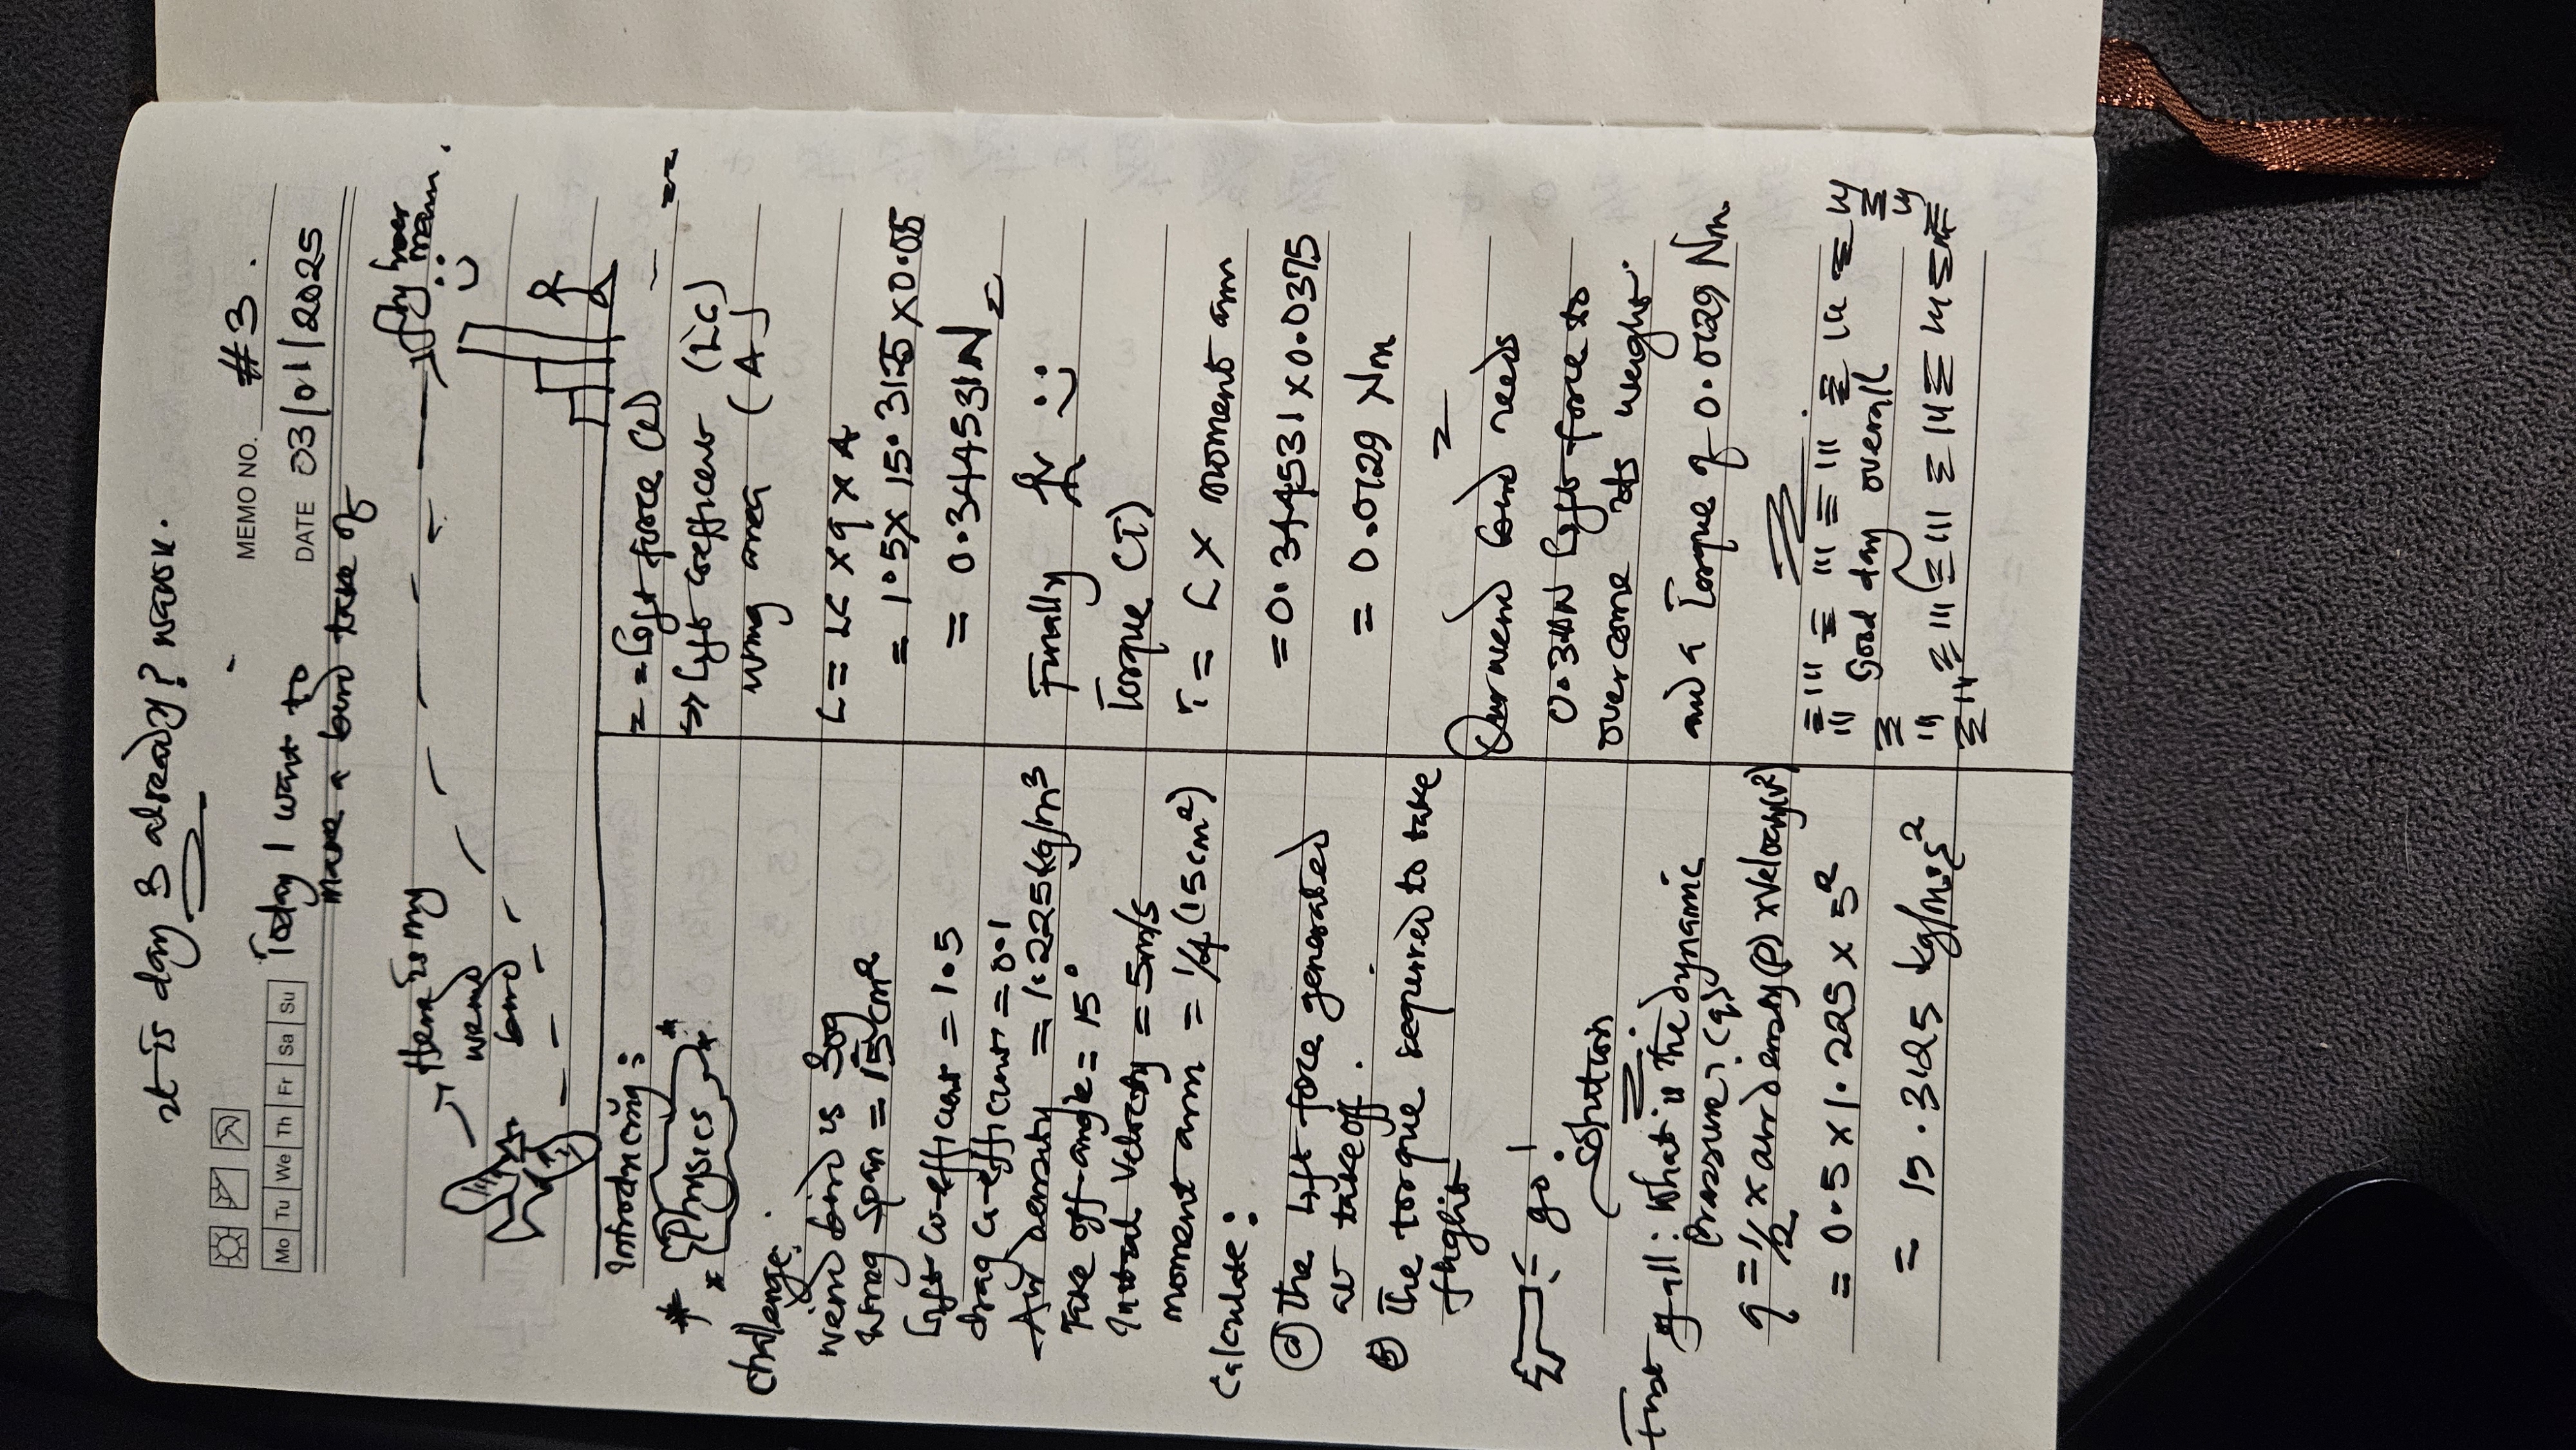 It is day 3 already? wawu.
MEMO NO. #3.
Mo Tu We Th Fr Sa Su
DATE 03/01/2025
Today I want to
make a bird take of
Here is my
weird
bird
fly
Introducing:
Physics
Challenge:
weird bird is 30g
Wing Span = 15cm²
Lift Co-efficient = 1.5
drag Co-efficient = 0.1
Air density = 1.225kg/m³
Take off-angle = 15°
Initial Velocity = 5m/s
moment arm = 1/4 (15cm²)
Calculate:
(a) The Lift force generated
at takeoff.
(b) The torque required to take
flight
go!
Solution
First of all: What is the dynamic
Pressure? (q)
q = 1/2 x air density(ρ) x Velocity(v²)
= 0.5 x 1.225 x 5²
= 15.3125 kg/m.s²
= = Lift force (L)
=> Lift coefficient (LC)
wing area (A)
L = LC x q x A
= 1.5 x 15.3125 x 0.05
= 0.344531N
Finally
Torque (T)
T = L x moment arm
= 0.344531 x 0.0375
= 0.0129 Nm
Our weird bird needs
0.34N Lift force to
overcome its weight
and a Torque of 0.0129 Nm.
Good day overall